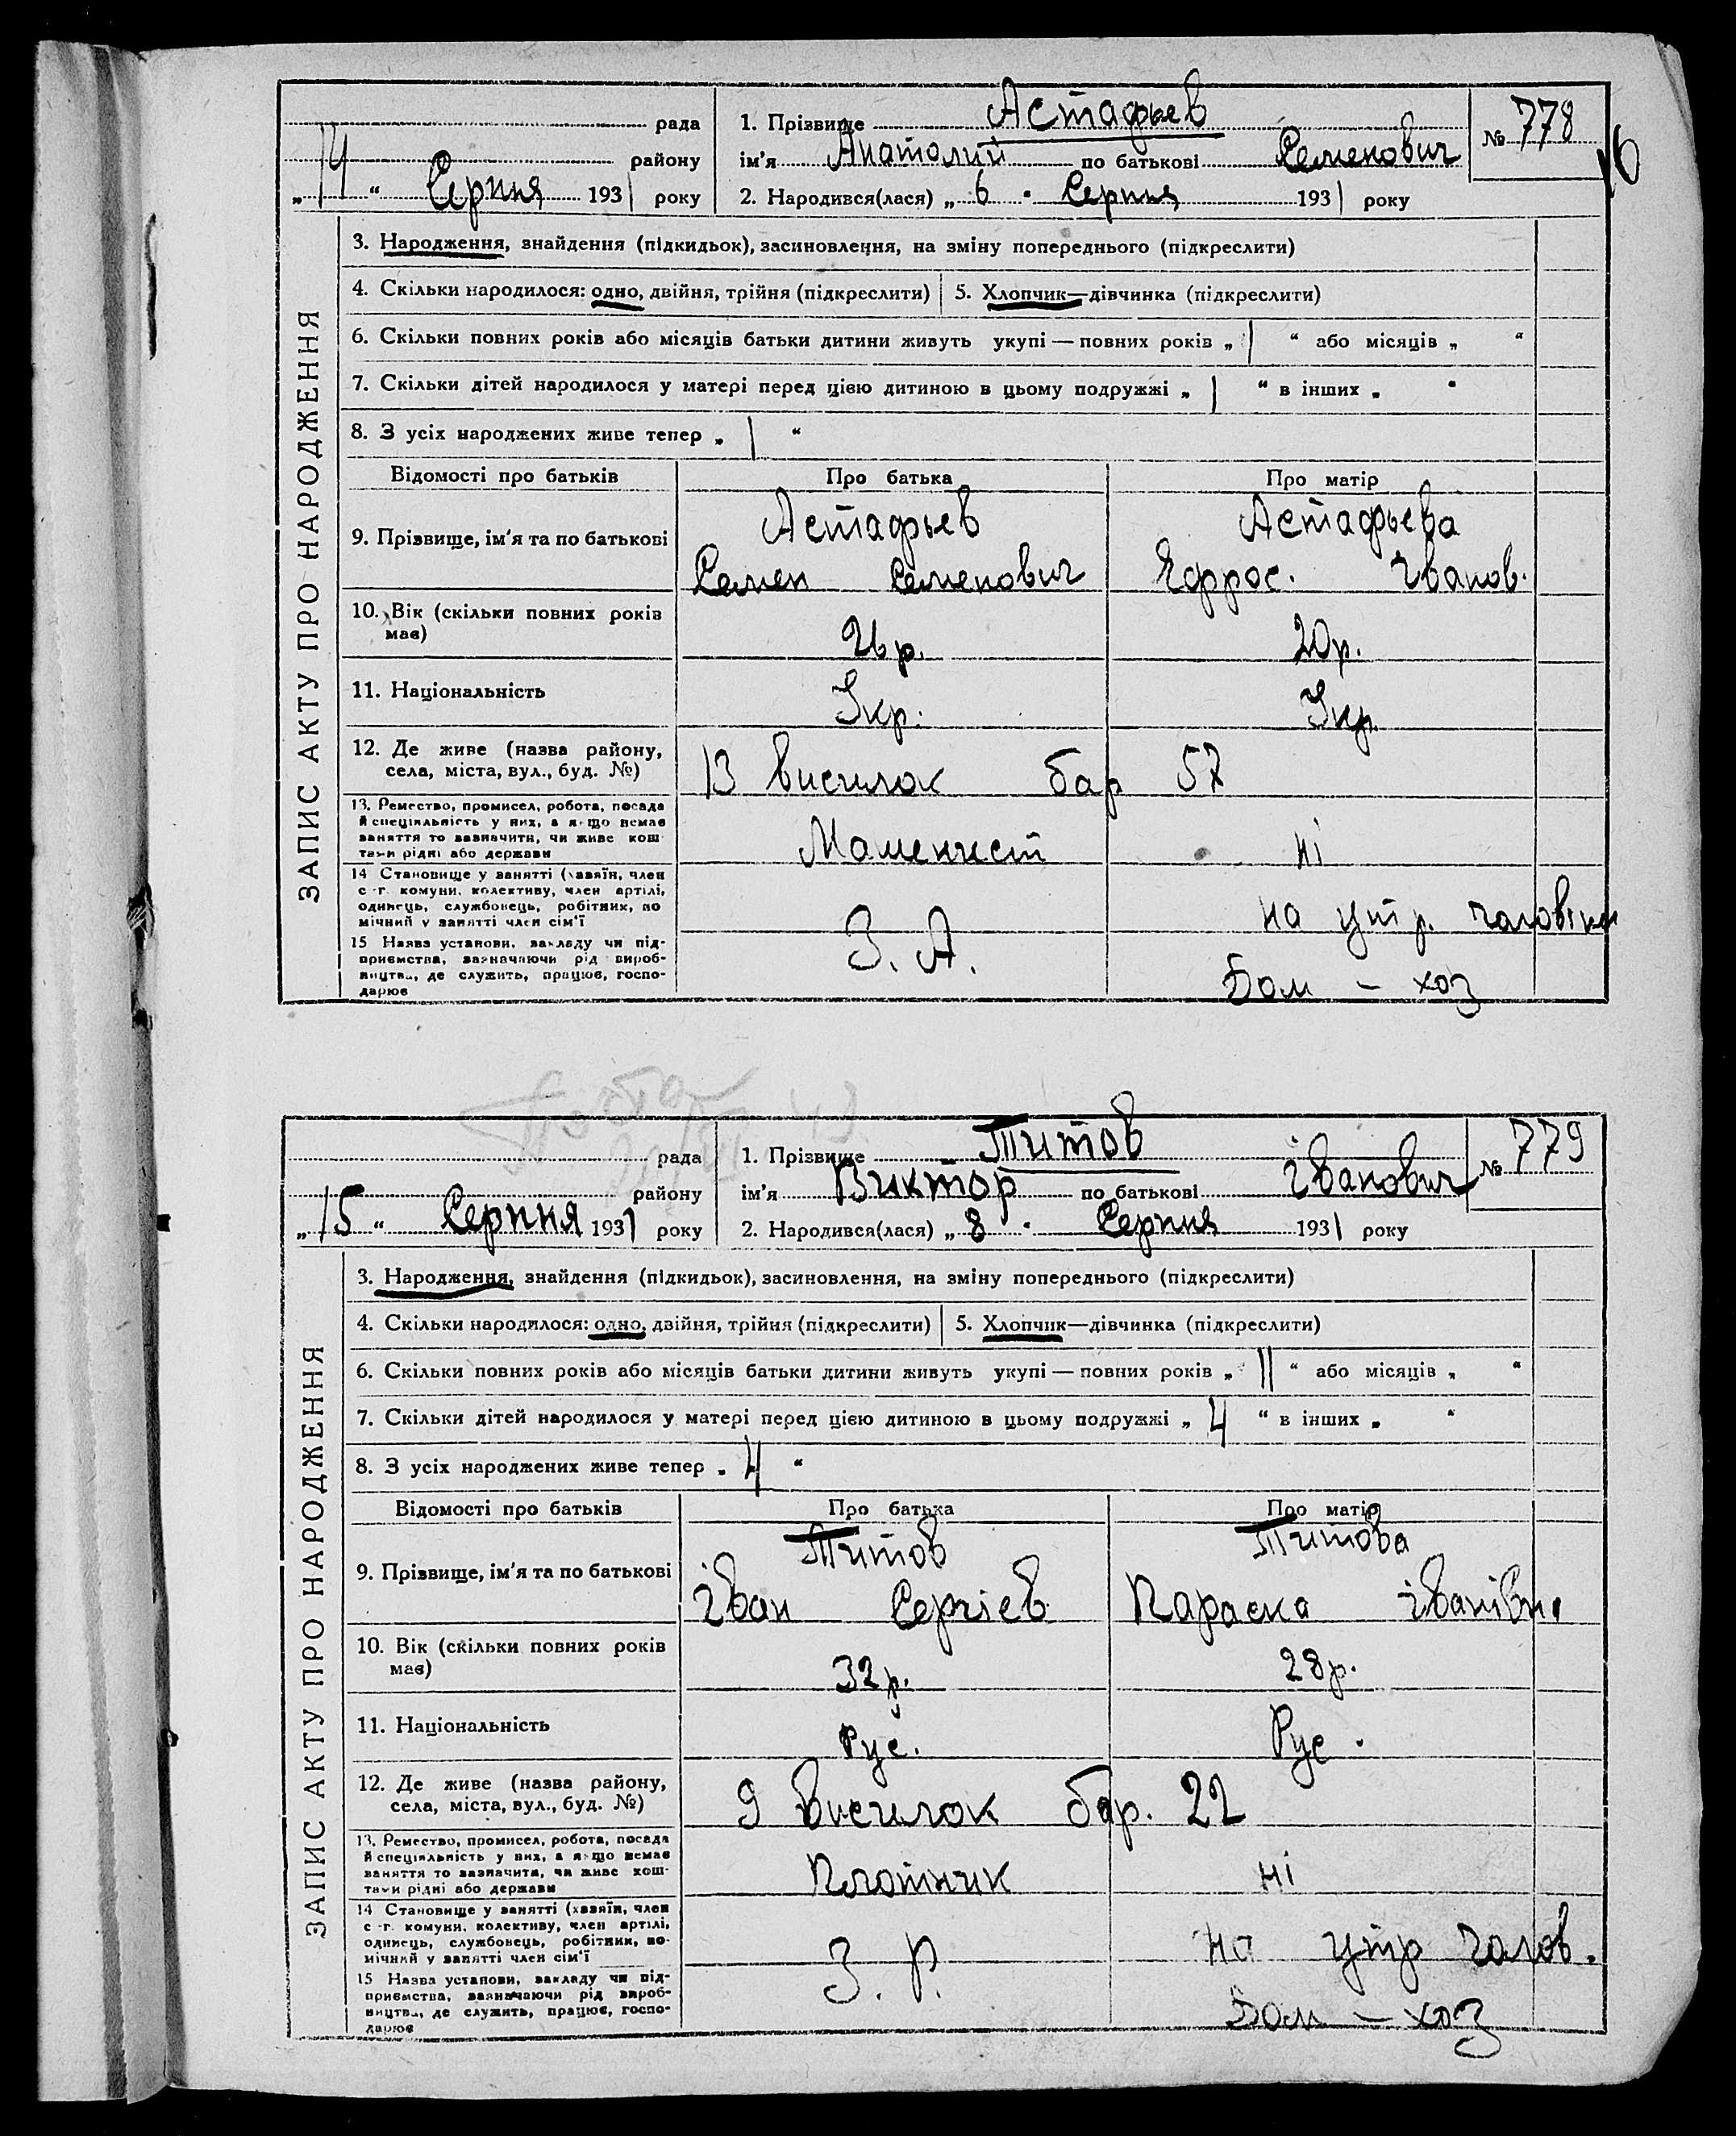 рада
району
„ 14 “ Серпня 1931 року
1. Прізвище Астафьев
ім'я Анатолий по батькові Семенович
2. Народився(лася) „ 6 “ Серпня 1931 року
№ 778
16
ЗАПИС АКТУ ПРО НАРОДЖЕННЯ
3. Народження, знайдення (підкидьок), засиновлення, на зміну попереднього (підкреслити)
4. Скільки народилося: одно, двійня, трійня (підкреслити) 5. Хлопчик—дівчинка (підкреслити)
6. Скільки повних років або місяців батьки дитини живуть укупі — повних років „ 1 “ або місяців „ “
7. Скільки дітей народилося у матері перед цією дитиною в цьому подружжі „ 1 “ в інших „ “
8. З усіх народжених живе тепер „ 1 “
Відомості про батьків Про батька Про матір
9. Прізвище, ім'я та по батькові
Астафьев Астафьева
Семен Семенович Ефрос. Іванов.
10. Вік (скільки повних років
має)
26 р. 20 р.
11. Національність Укр. Укр.
12. Де живе (назва району,
села, міста, вул., буд. №)
13 висилок бар 57
13. Ремество, промисел, робота, посада
й спеціяльність у них, а якщо немає
заняття то зазначити, чи живе кош-
тами рідні або держави
ні
14 Становище у занятті (хазяїн, член
с.-г. комуни, колективу, член артілі,
одинець, службовець, робітник, по-
мічний у занятті член сім'ї
на утр. чоловіка
15 Назва установи, закладу чи під-
приємства, зазначаючи рід вироб-
ництва, де служить, працює, госпо-
дарює
З. А.
Дом – хоз
рада
району
„ 15 “ Серпня 1931 року
1. Прізвище Титов
ім'я Виктор по батькові Іванович
2. Народився(лася) „ 8 “ Серпня 1931 року
№ 779
ЗАПИС АКТУ ПРО НАРОДЖЕННЯ
3. Народження, знайдення (підкидьок), засиновлення, на зміну попереднього (підкреслити)
4. Скільки народилося: одно, двійня, трійня (підкреслити) 5. Хлопчик—дівчинка (підкреслити)
6. Скільки повних років або місяців батьки дитини живуть укупі — повних років „ 11 “ або місяців „ “
7. Скільки дітей народилося у матері перед цією дитиною в цьому подружжі „ 4 “ в інших „ “
8. З усіх народжених живе тепер „ 4 “
Відомості про батьків Про батька Про матір
9. Прізвище, ім'я та по батькові
Титов Титова
Іван Сергіев Параска Іванівн.
10. Вік (скільки повних років
має)
32 р. 28 р.
11. Національність Рус. Рус.
12. Де живе (назва району,
села, міста, вул., буд. №)
9 висилок бар. 22
13. Ремество, промисел, робота, посада
й спеціяльність у них, а якщо немає
заняття то зазначити, чи живе кош-
тами рідні або держави
Плотник ні
14 Становище у занятті (хазяїн, член
с.-г. комуни, колективу, член артілі,
одинець, службовець, робітник, по-
мічний у занятті член сім'ї
на утр чолов.
15 Назва установи, закладу чи під-
приємства, зазначаючи рід вироб-
ництва, де служить, працює, госпо-
дарює
З. Р.
Дом – хоз